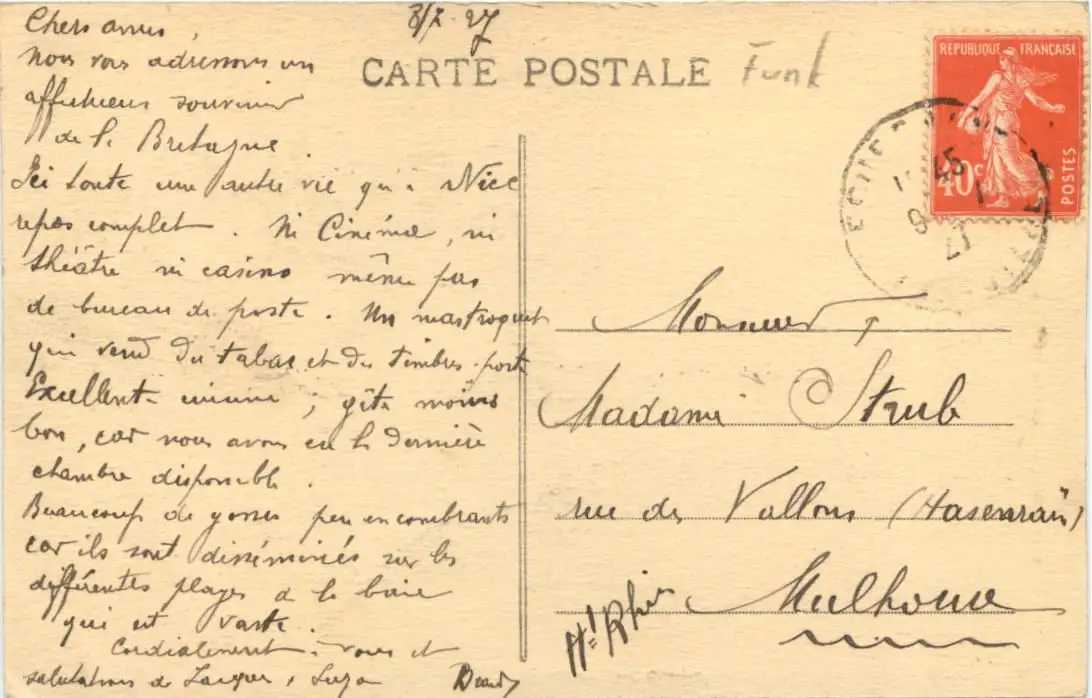 8/7.27
Chers amis,
nous vous adressons un
affectueux souvenir
de la Bretagne.
Ici toute une autre vie qu'à Nice
repos complet. Ni Cinéma, ni
théâtre ni casino même pas
de bureau de poste. Un mastroquet
qui vend du tabac et des timbres-poste
Excellente cuisine, gîte moins
bon, car nous avons eu la dernière
chambre disponible.
Beaucoup de gosses peu encombrants
car ils sont disséminés sur les
différentes plages de la baie
qui est vaste.
Cordialement à vous et
salutations de Jacques, Suza
CARTE POSTALE
Funk
REPUBLIQUE FRANÇAISE
40c POSTES
45
9
27
Monsieur
Madame Strub
rue des Vallons (Hasenrain)
Mulhouse
Ht Rhin